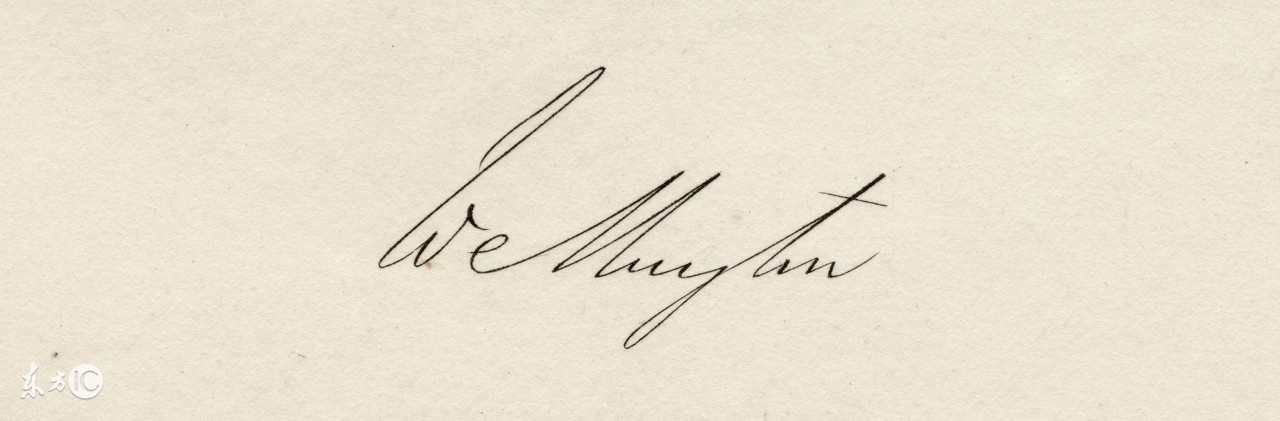 Wellington
东方IC